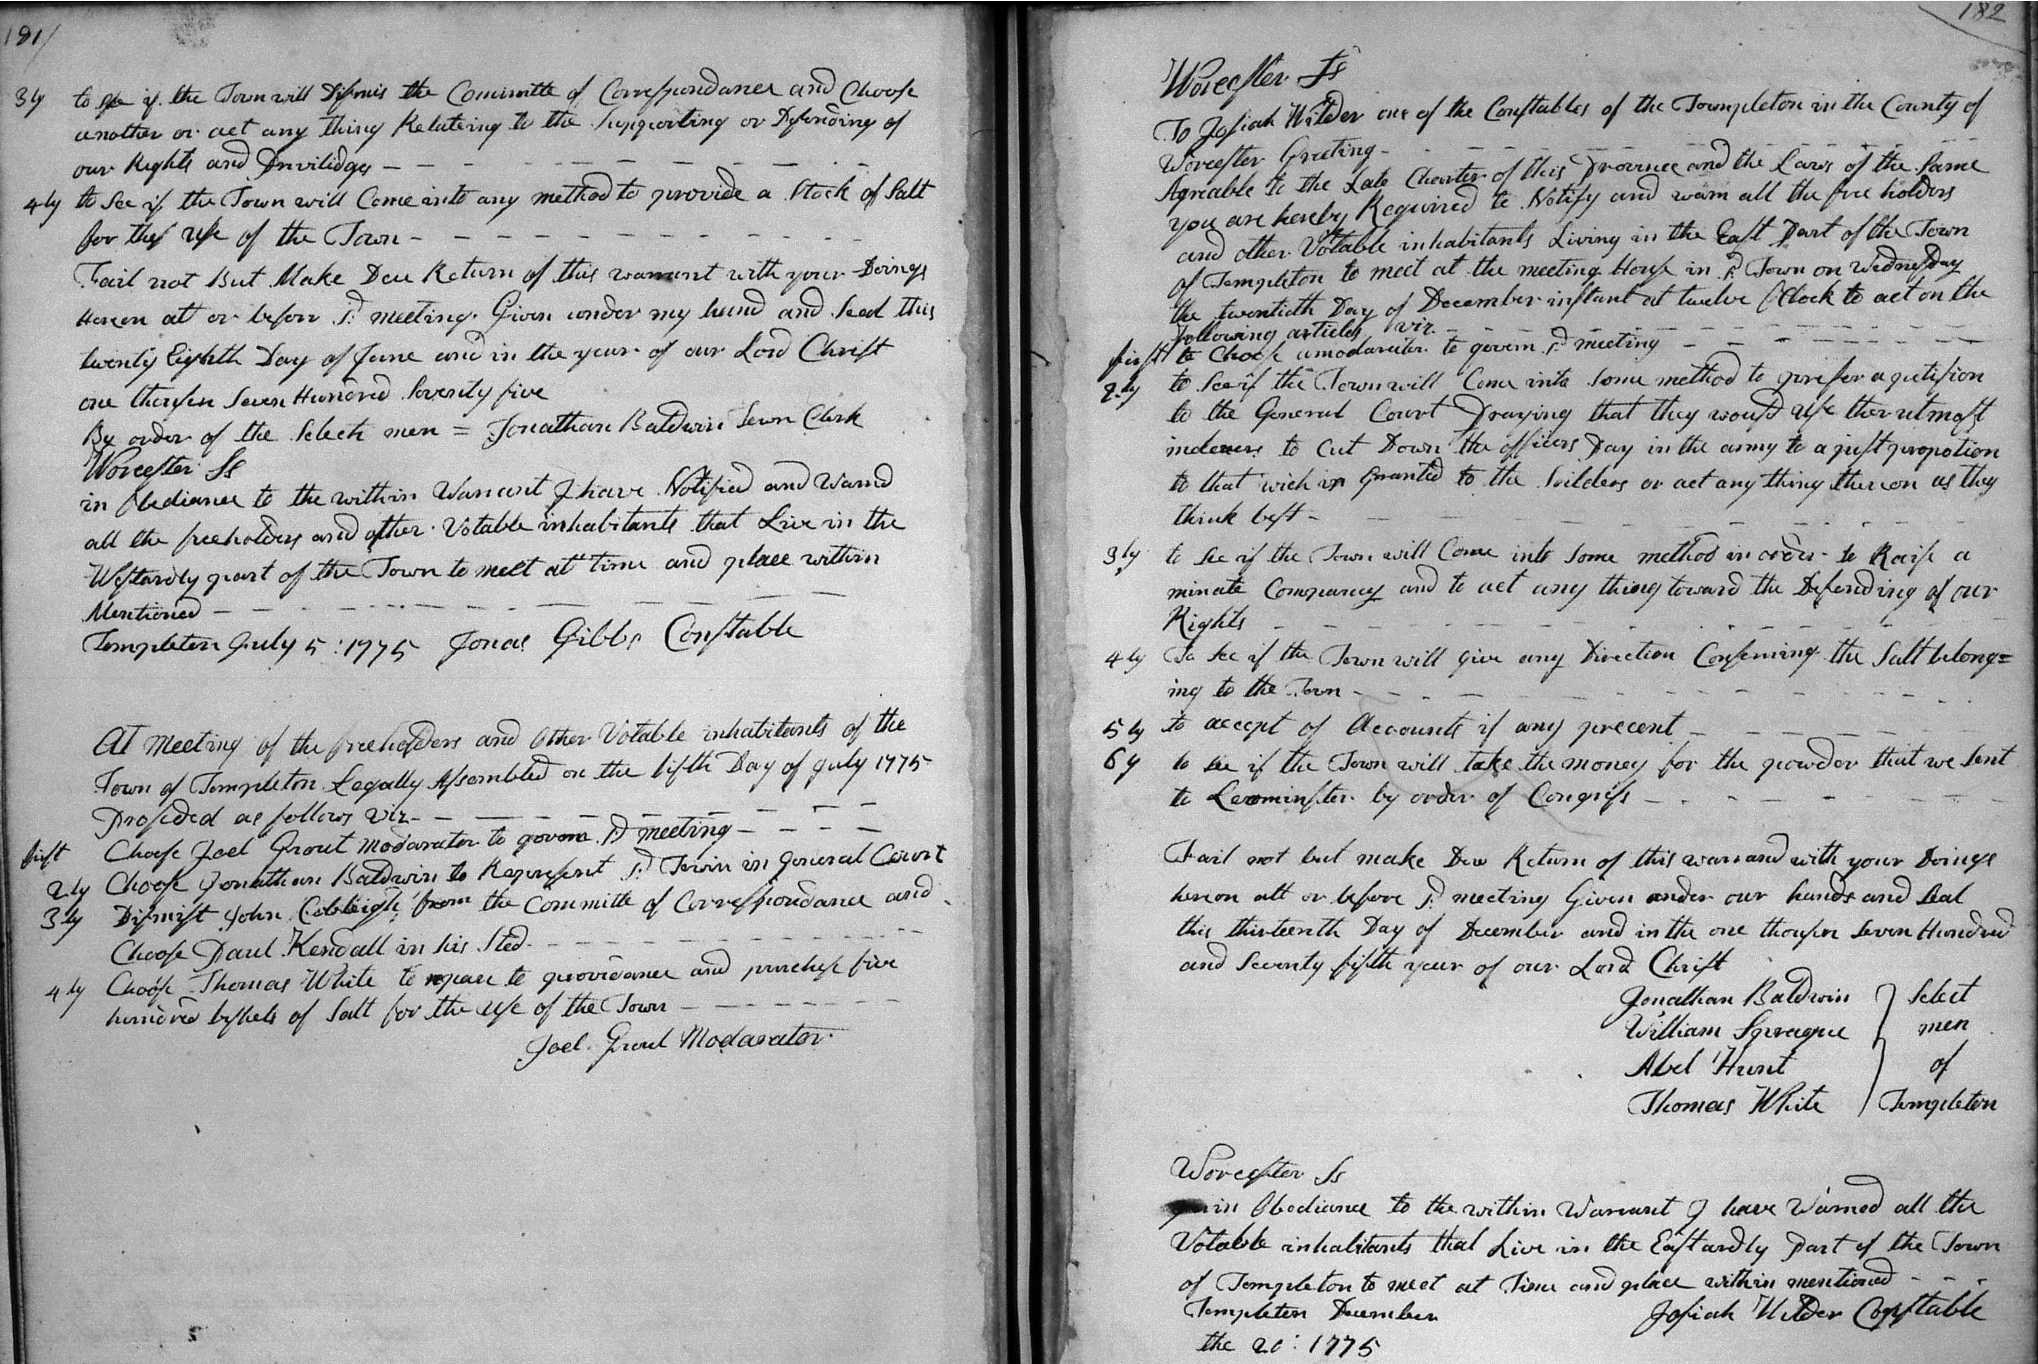 181/
3ly to see if the Town will Dismis the Committe of Correspondance and Choose
another or act any thing Relatering to the Supporting or Defending of
our Rights and Privilidges
4ly to See if the Town will Come into any method to provide a Stock of Salt
for the use of the Town
Fail not But Make Due Return of this warrant with your Doings
Hereon att or before sd meeting. Given under my hand and Seal this
twenty Eighth Day of June and in the year of our Lord Christ
one thousen Seven Hundred Seventy five
By order of the Select men = Jonathan Baldwin Town Clerk
Worcester Ss
in Obediance to the within Warrant I have Notified and Warnd
all the freeholders and other Votable inhabitants that Live in the
Westardly part of the Town to meet at time and place within
Mentioned
Templeton July 5: 1775 Jonas Gibbs Constable
At Meeting of the freeholders and Other Votable inhabitants of the
Town of Templeton Legally Assembled on the fifth Day of July 1775
Proseded as follows viz
first Choose Joel Grout modarator to govern sd meeting
2ly Choose Jonathan Baldwin to Represent sd Town in General Court
3ly Dismist John Cobleigh from the Committe of Correspondance and
Choose Paul Kendall in his Sted
4ly Choose Thomas White to repare to providance and purchese five
hundred beshels of Salt for the use of the Town
Joel Grout Modarator
182
Worcester Ss
To Josiah Wilder one of the Constables of the Townpleton in the County of
Worcester Greeting
Agreable to the Late Charter of this Province and the Laws of the Same
you are hereby Required to Notify and warn all the free holders
and other Votable inhabitants Living in the East Part of the Town
of Templeton to meet at the meeting House in sd Town on Wednesday
the twentieth Day of December instant at twelve Clock to act on the
following articles viz
first to Choose a modarator to govern sd meeting
2ly to See if the Town will Come into Some method to prefer a petision
to the General Court Praying that they would use ther utmost
indevers to Cut Down the officers Pay in the army to a just propotion
to that wich is Granted to the Soilders or act any thing thereon as they
think best
3ly to See if the Town will Come into Some method in order to Raise a
minate Companey and to act any thing toward the Defending of our
Rights
4ly To See if the Town will give any Direction Conserning the Salt belong=
ing to the Town
5ly to accept of Accounts if any precent
6y to see if the Town will take the money for the powder that we Sent
to Leominster by order of Congress
Fail not but make Due Return of this warrand with your Doings
hereon att or before sd meeting Given under our hands and Seal
this thirteenth Day of December and in the one thousen Seven Hundred
and Seventy fifth year of our Lord Christ
Jonathan Baldwin } Select
William Sprague men
Abel Hunt of
Thomas White Templeton
Worcester Ss
in Obediance to the within Warrant I have Warned all the
Votable inhabitants that Live in the Eastardly Part of the Town
of Templeton to meet at Time and place within mentioned
Templeton December Josiah Wilder Constable
the 20: 1775